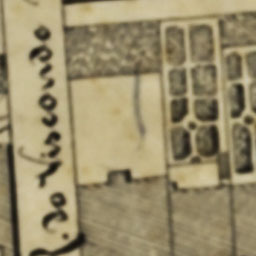 R. do Visconde